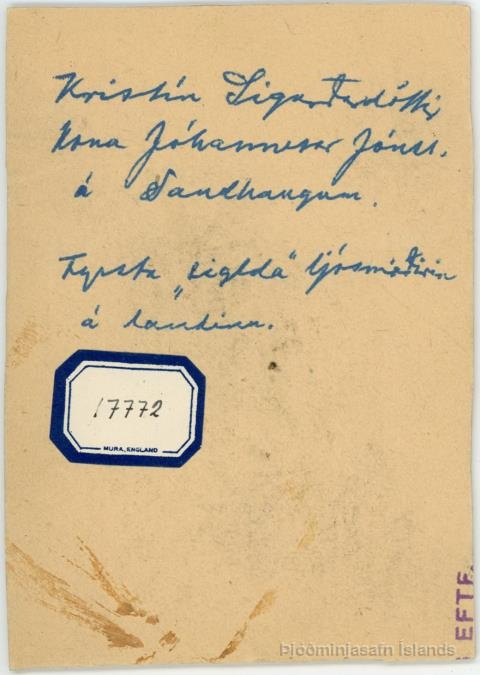 Kristín Sigurðardóttir
Kona Jóhannesar Jónss.
á Sandhaugum.
Fyrsta „siglda" ljósmóðirin
á landinu.
17772
MURA, ENGLAND
EFTF.
Þjóðminjasafn Íslands